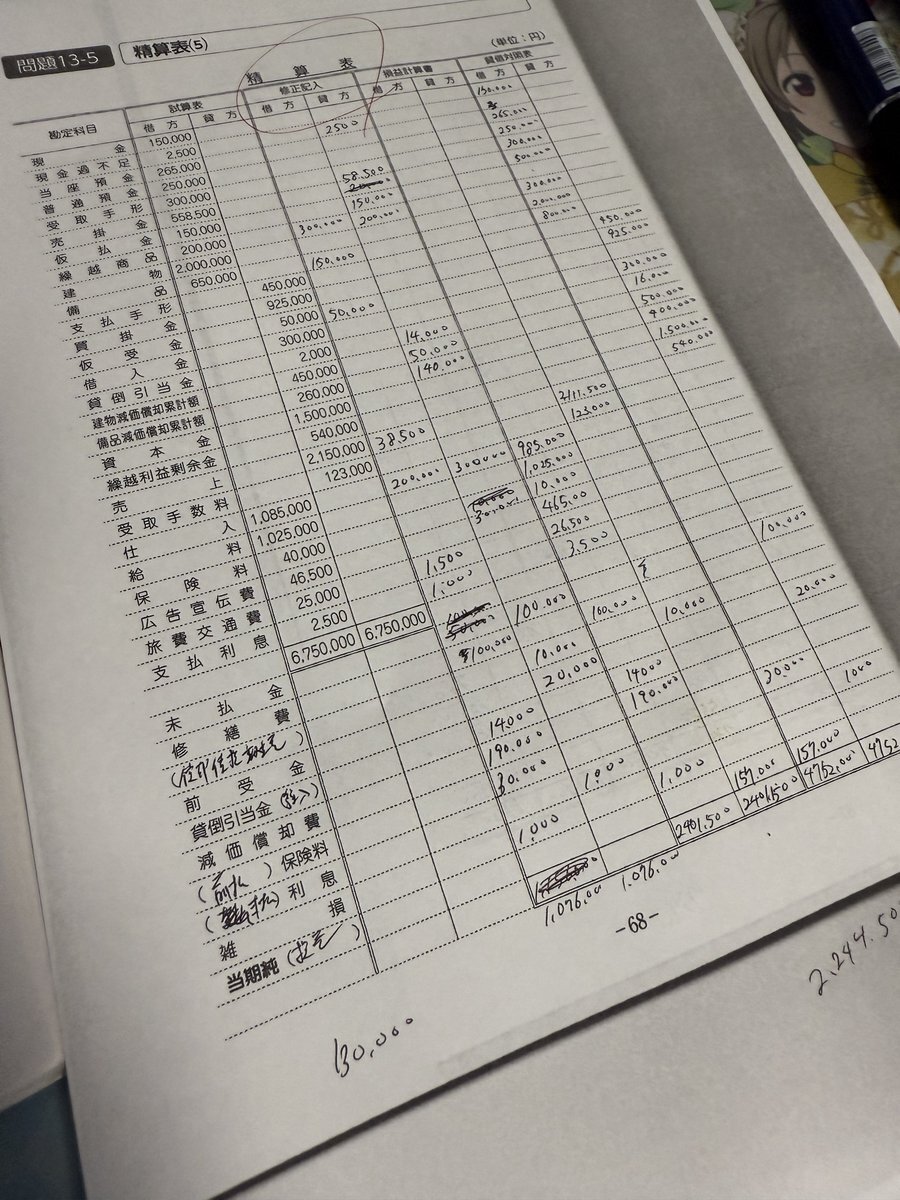 問題13-5 精算表(5)
精算表 (単位：円)
勘定科目 試算表 修正記入 損益計算書 貸借対照表
借方 貸方 借方 貸方 借方 貸方 借方 貸方
現金 150,000 130.000
現金過不足 2,500 2500
当座預金 265,000 265.000
普通預金 250,000 250.000
受取手形 300,000 300.000
売掛金 558,500 58.500 500.000
仮払金 150,000 150.000
繰越商品 200,000 300.000 200.000 300.000
建物 2,000,000 2.000.000
備品 650,000 150,000 800.000
支払手形 450,000 450.000
買掛金 925,000 925.000
仮受金 50,000 50,000
借入金 300,000 300.000
貸倒引当金 2,000 14.000 16.000
建物減価償却累計額 450,000 50.000 500.000
備品減価償却累計額 260,000 140.000 400.000
資本金 1,500,000 1.500.000
繰越利益剰余金 540,000 540.000
売上 2,150,000 38.500 2111.500
受取手数料 123,000 123.000
仕入 1,085,000 200.000 300.000 985.000
給料 1,025,000 1.025.000
保険料 40,000 30.000 10.000
広告宣伝費 46,500 46500
旅費交通費 25,000 1,500 26.500
支払利息 2,500 1.000 3.500
6,750,000 6,750,000
未払金 100.000 100.000
修繕費 100,000 100.000
前受金 20,000 20.000
貸倒引当金 14.000 14000
減価償却費 190.000 190.000
(前払)保険料 30.000 30.000
利息 1.000 1000
雑損 1,000 1.000
当期純 157.000 157.000
1,076.00 1,076.00 2401.500 2401.500 4752.00 4752
-68-
130,000
2.244.50